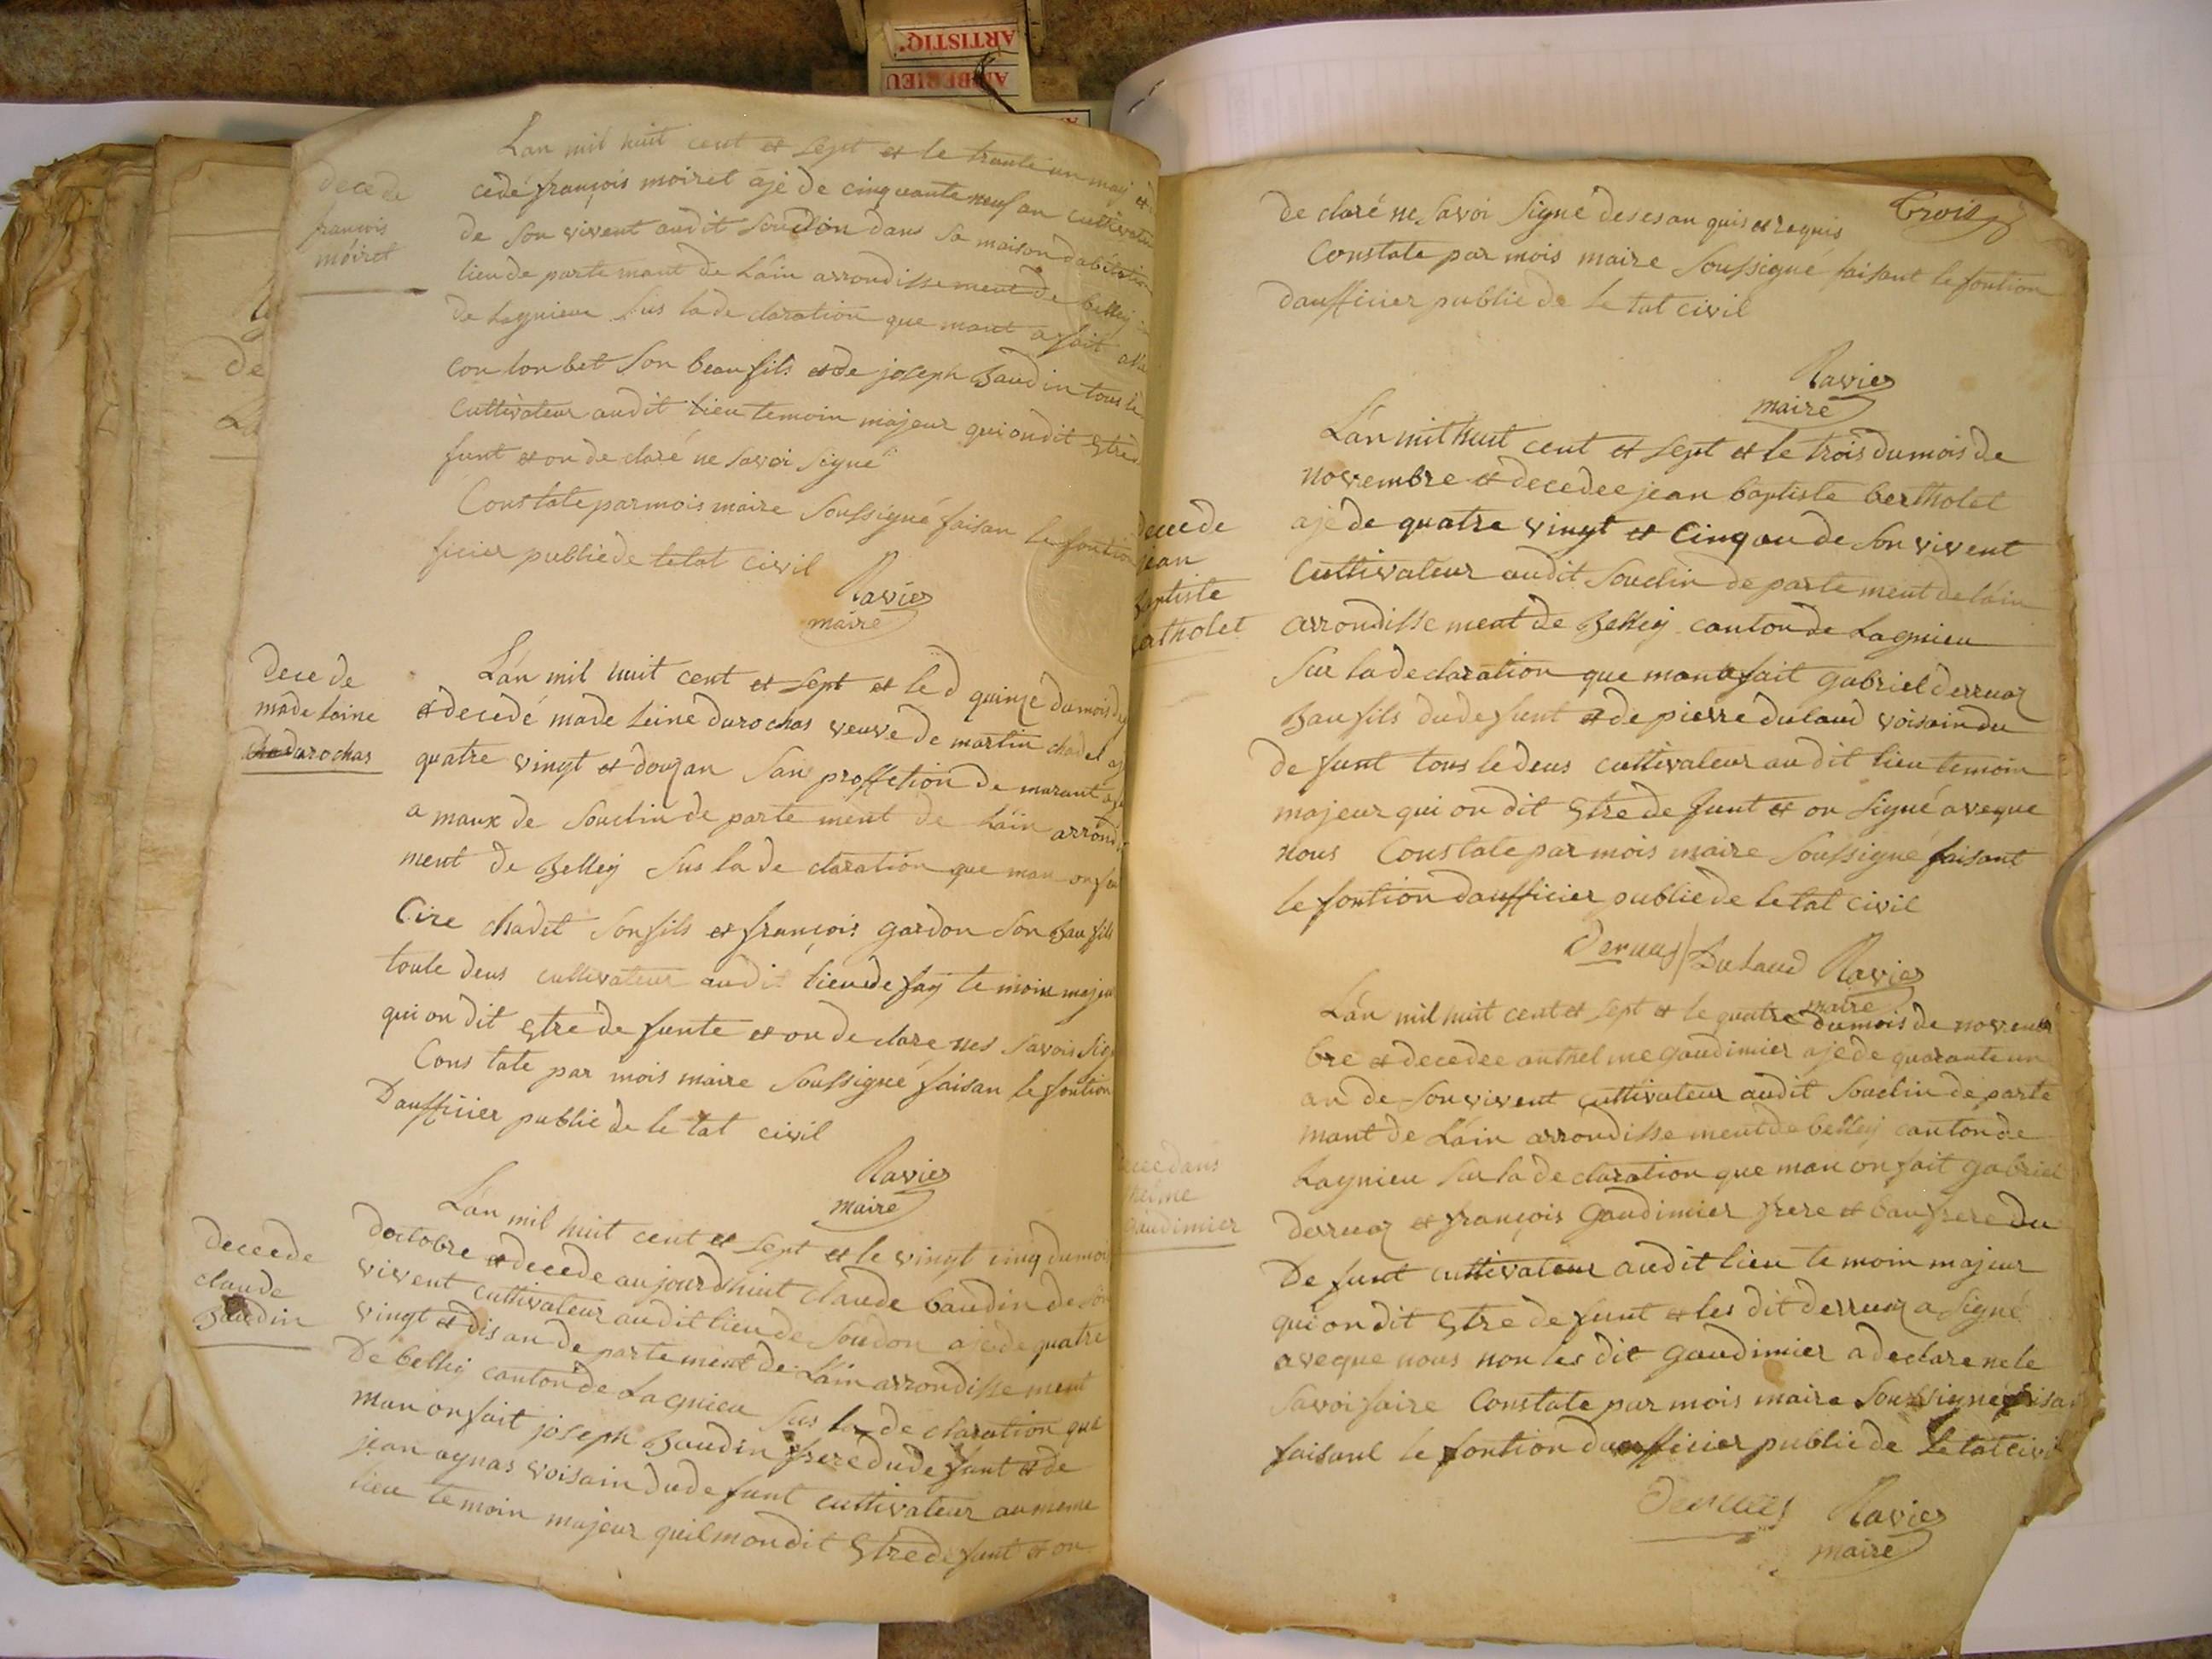 ARTISTIQ'
decede
françois
moiret
Lan mil huit cent et sept et le trante un may et
cedé françois moiret ajé de cinquante neuf an cultivateu
de son vivent audit Souclin dans sa maison dabitation
lieu de parte mant de Láin arrondissement de belley
de Lagnieu sus la de claration que mant a fait
con lonbet son beau fils et de joseph Baudin tous le
cultivateur audit lieu temoin majeur qui on dit Estre
funt et on de claré ne savoi signé
Constate par mois maire soussigné faisan le fontion
ficier publicde letat civil
Ravier
maire
dece de
made laine
durochas
Lán mil huit cent et sept et le d quinze du mois d
et decedé made leine durochas veuve de martin chadel
quatre vingt et douzan san proffetion de murant
a maux de Souclin de parte ment de Láin arrondi
ment de Belley sus la de claration que man on
Cire chadet son fils et françois gardon son Bau fils
toute deus cultivateur audit lieu de fay te moin majeu
qui on dit Estre de funte et on de clare nes savois sig
Cons tate par mois maire soussigné faisan le fontion
Daufficier public de le tat civil
Ravier
maire
decede
claude
Baudin
Lán mil huit cent et sept et le vingt cinq du mois
doctobre et decede au jourdhuit claude baudin de son
vivent cultivateur audit lieu de Soudon ajé de quatre
vingt et dis an de parte ment de Láin arrondisse ment
de belley canton de Lagnieu sus la de claration que
man on fait joseph Baudin frere du de funt et de
jean aynas voisain du de funt cultivateur au meme
lieu temoin majeur quil mon dit Estre de funt et on
Trois
de claré ne savoi signé deses an quis et requis
Constate par mois maire soussigné faisant le fontion
daufficier public de le tat civil
Ravier
maire
decede
jean
baptiste
bertholet
Lán mil huit cent et sept et le trois du mois de
novembre et decedee jean baptiste bertholet
ajé de quatre vingt et Cinq an de son vivent
cultivateur audit Souclin de parte ment de láin
arrondisse ment de Belley canton de Lagnieu
sur la de claration que man a fait gabriel derruaz
Bau fils du de funt et de pierre dulaud voisain du
de funt tous le deus cultivateur au dit lieu temoin
majeur qui on dit Estre de funt et on signé aveque
nous Constate par mois maire soussigné faisant
le fontion daufficier public de le tat civil
Deruas Dulaud Ravier
maire
Gaudimier
Lán mil huit cent et sept et le quatre du mois de novem
bre et decedee anthel me gaudimier ajé de quarante un
an de son vivent cultivateur audit Souclin de parte
mant de Láin arrondisse ment de belley canton de
Lagnieu sur la de claration que man on fait gabriel
derruaz et françois Gaudimier frere et bau frere du
De funt cultivateur audit lieu te moin majeur
qui on dit Estre de funt et les dit derruaz a signé
aveque nous non les dit gaudimier a declare ne le
savoi faire Constate par mois maire soussigné faisa
faisant le fontion daufficier public de le tat civi
Deruas Ravier
maire